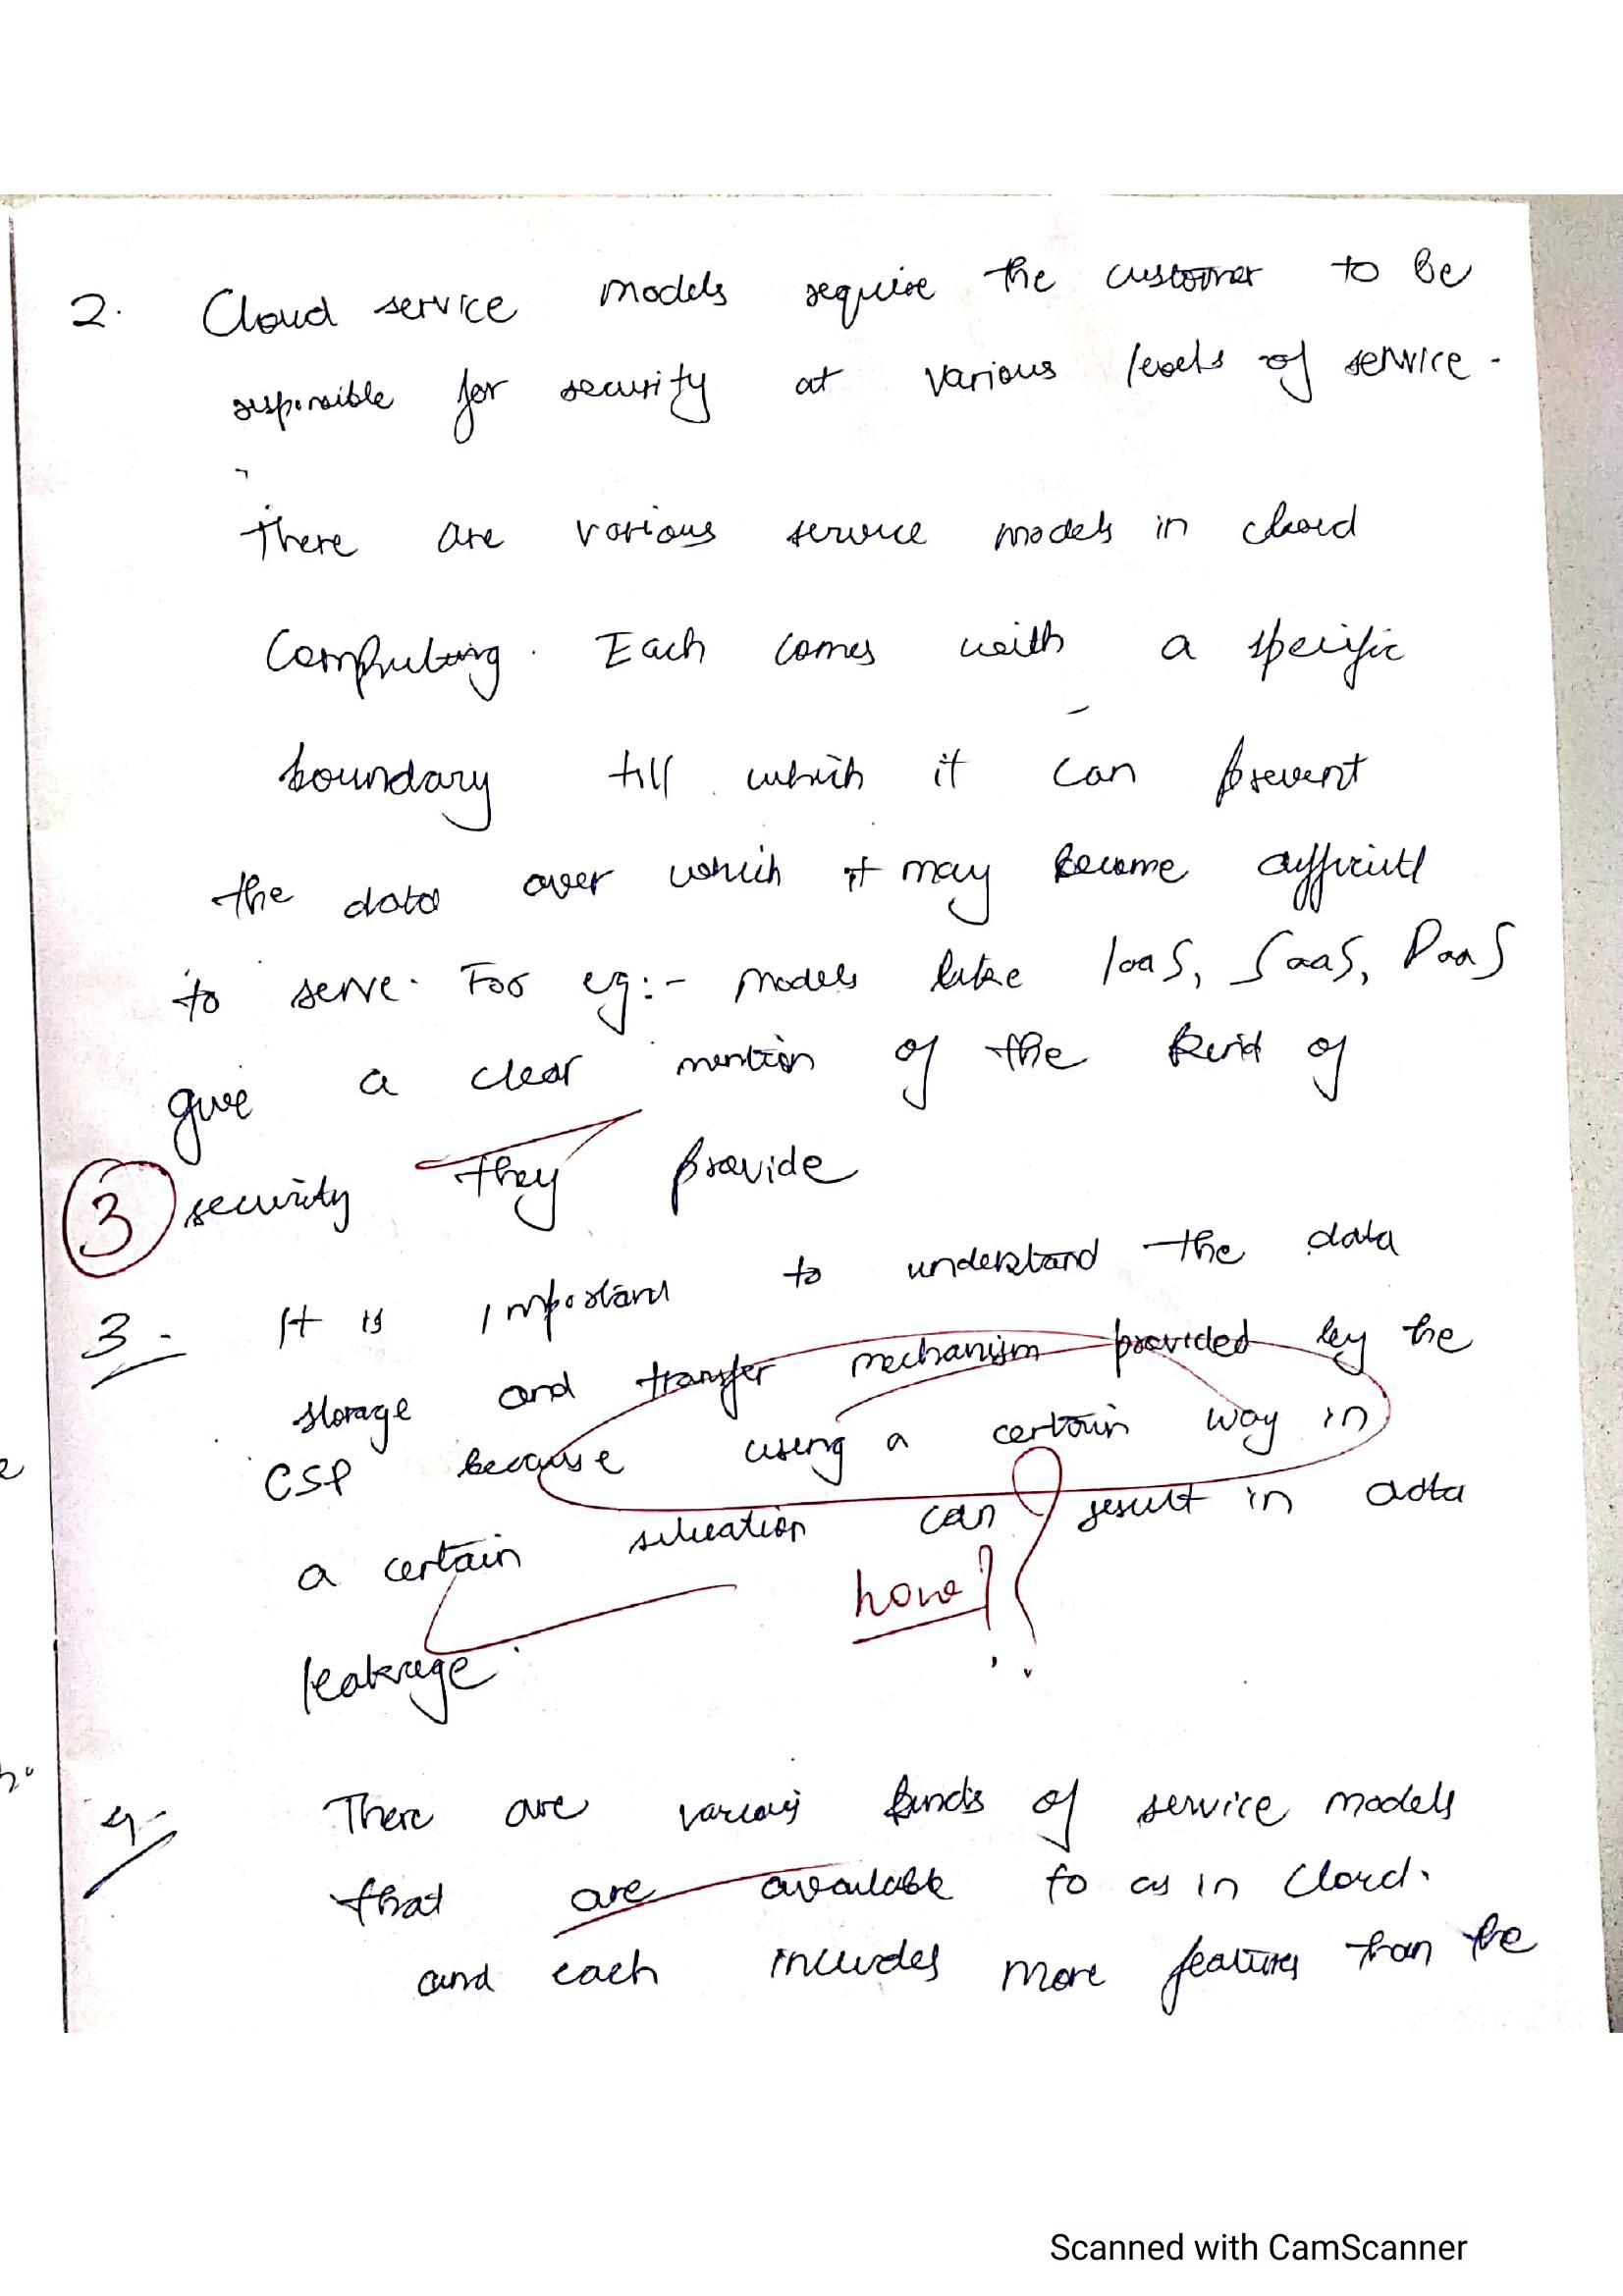 2. Cloud service models require the customer to be
responsible for security at various levels of service.
There are various service models in cloud
Computing. Each comes with a specific
boundary till which it can prevent
the data over which it may become difficult
to serve. For eg:- models like IaaS, SaaS, PaaS
give a clear mention of the kind of
3 security they provide
3- It is important to understand the data
storage and transfer mechanism provided by the
CSP because using a certain way in
a certain situation can result in data
how?
leakage.
4- There are various kinds of service models
that are available to us in Cloud.
and each includes more features than the
Scanned with CamScanner